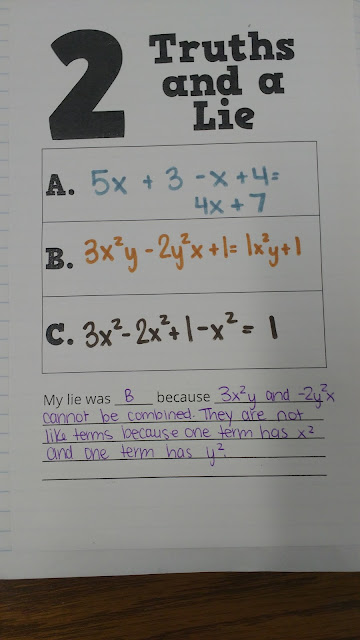 2 Truths
and a
Lie
A. 5x + 3 - x + 4 =
4x + 7
B. 3x²y - 2y²x + 1 = 1x²y + 1
C. 3x² - 2x² + 1 - x² = 1
My lie was B because 3x²y and -2y²x
cannot be combined. They are not
like terms because one term has x²
and one term has y².